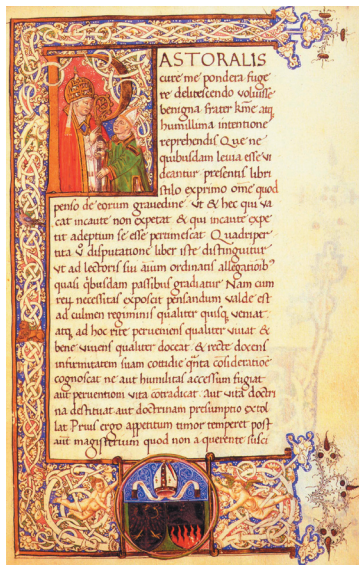 PASTORALIS
cure me pondera fuge
re delitescendo voluisse
benigna frater kme atq
humillima intentione
reprehendis Que ne
quibusdam leuia esse vi
deantur presentis libri
stilo exprimo ome quod
penso de eorum grauedine Vt & hec qui va
cat incaute non expetat & qui incaute expe
tit adeptum se esse pertimescat Quadriper
tita vo disputatione liber iste distinguitur
vt ad lectoris sui aium ordinatis allegatioib9
quasi qbusdam passibus gradiatur Nam cum
reru necessitas exposcit pensandum valde est
ad culmen regiminis qualiter quisq veniat
atq ad hoc rite perueniens qualiter viuat &
bene viuens qualiter doceat & recte docens
infirmitatem suam cottidie quta cosideratioe
cognoscat ne aut humilitas accessum fugiat
aut peruentioni vita cotradicat aut vita doctri
na destituat aut doctrinam presumptio extol
lat Prius ergo appetitum timor temperet post
aut magisterium quod non a querente susci